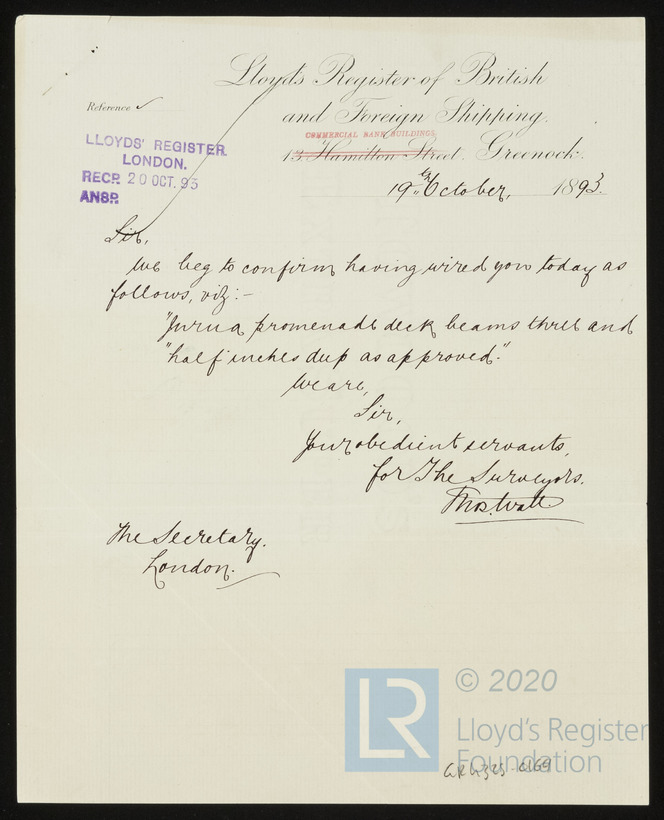 Lloyd's Register of British
and Foreign Shipping.
Reference
COMMERCIAL BANK BUILDINGS,
13 Hamilton Street. Greenock.
LLOYDS' REGISTER
LONDON.
RECD. 20 OCT. 93
ANSD.
19th October, 1893.
Sir,
We beg to confirm having wired you today as
follows, viz:-
"Jurua promenade deck beams three and
"half inches deep as approved."
We are,
Sir,
Your obedient servants,
for The Surveyors.
Thos. Watt
The Secretary.
London.
© 2020
LR
Lloyd's Register
Foundation